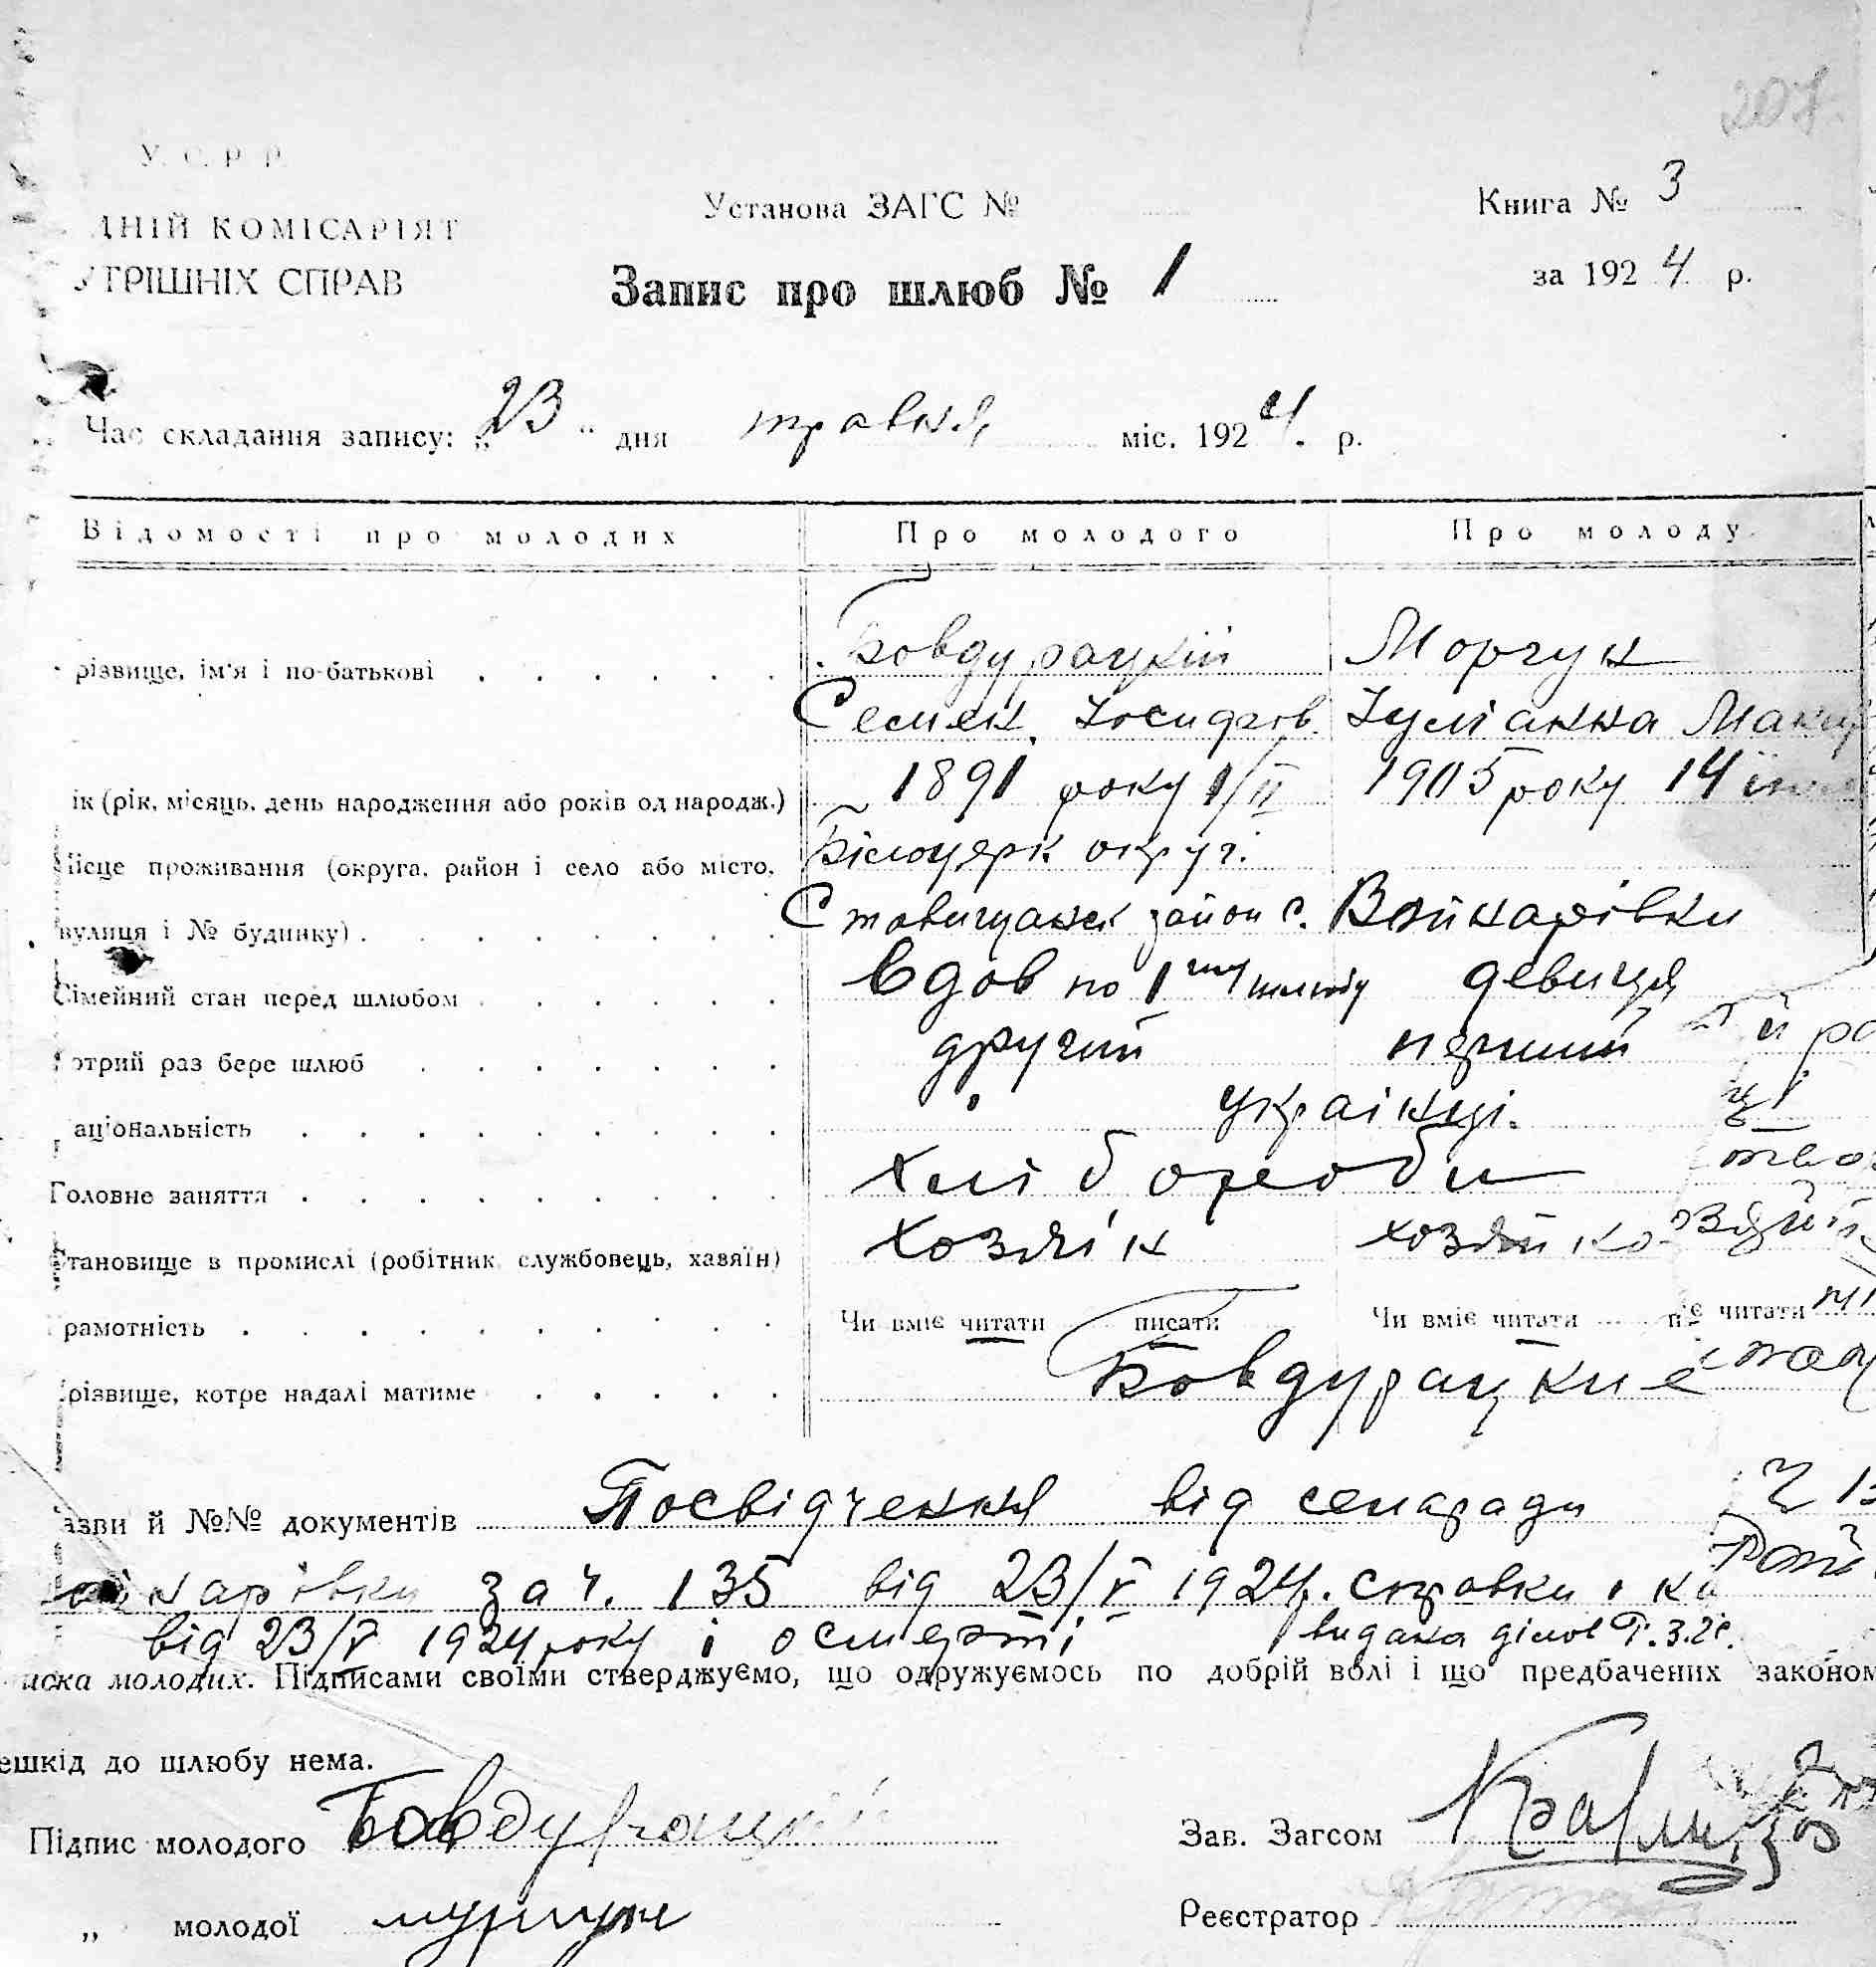 207.
У. С. Р. Р.
ДНІЙ КОМІСАРІЯТ
УТРІШНІХ СПРАВ
Установа ЗАГС №
Книга № 3
Запис про шлюб № 1
за 1924 р.
Час складання запису: „23“ дня травня міс. 1924. р.
Відомості про молодих Про молодого Про молоду
різвище, ім'я і по-батькові Бовдурацкій Морчук
Семен. Іосипов. Іуліанна
ік (рік, місяць, день народження або років од народж.) 1891 року 1/II 1905 року 14
Місце проживання (округа, район і село або місто, Білоцерк округ.
вулиця і № будинку) Ставищанск район с. Войнарівки
Сімейний стан перед шлюбом вдов по 1му шлюбу девиця
отрий раз бере шлюб другий перший
аціональність українці.
Головне заняття хлібороби
Становище в промислі (робітник службовець, хазяїн) хозяїн хозяйка
рамотність Чи вміє читати писати Чи вміє читати читати
різвище, котре надалі матиме Бовдурацкие
азви й №№ документів Посвідчення від сельради
нарівки за ч. 135 від 23/V 1924р. справки
від 23/V 1924 року і о смерті видана
иска молодих. Підписами своїми стверджуємо, що одружуємось по добрій волі і що предбачених законом
ешкід до шлюбу нема.
Підпис молодого Бовдурацкій
Зав. Загсом
„ молодої
Реєстратор